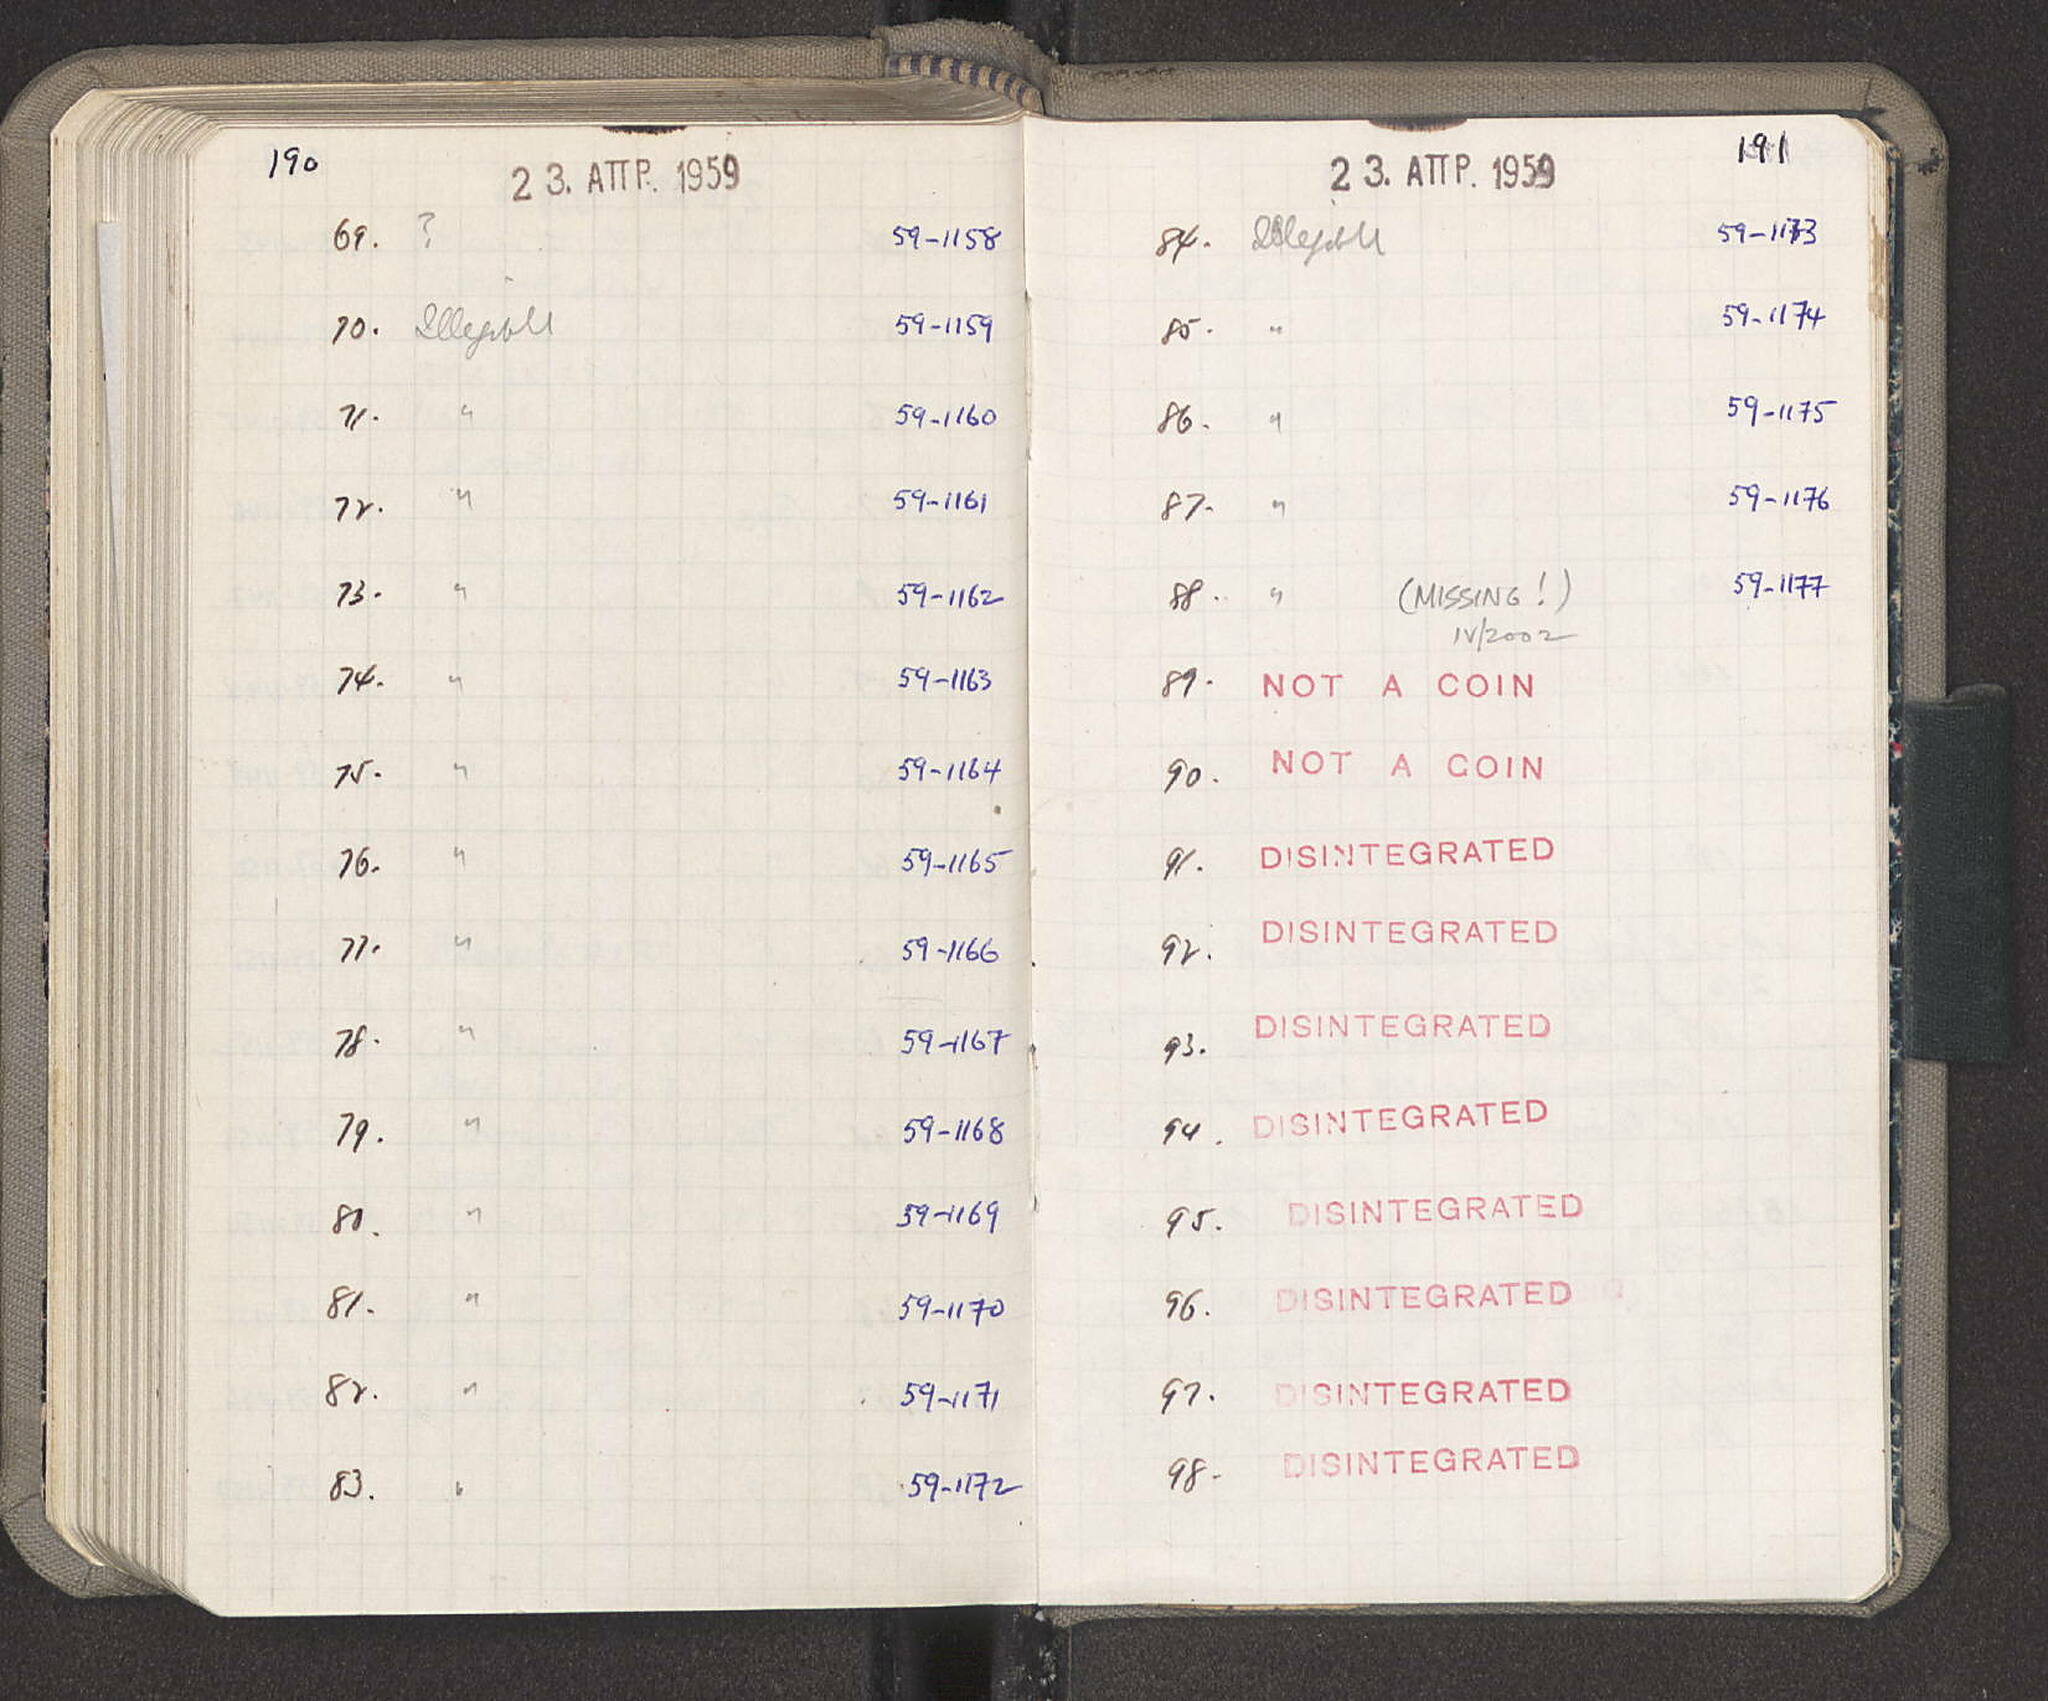 190
23. ΑΠΡ. 1959
69. ? 59-1158
70. Illegible 59-1159
71. " 59-1160
72. " 59-1161
73. " 59-1162
74. " 59-1163
75. " 59-1164
76. " 59-1165
77. " 59-1166
78. " 59-1167
79. " 59-1168
80. " 59-1169
81. " 59-1170
82. " 59-1171
83. " 59-1172
191
23. ΑΠΡ. 1959
84. Illegible 59-1173
85. " 59-1174
86. " 59-1175
87. " 59-1176
88. " (MISSING!) 59-1177
IV/2002
89. NOT A COIN
90. NOT A COIN
91. DISINTEGRATED
92. DISINTEGRATED
93. DISINTEGRATED
94. DISINTEGRATED
95. DISINTEGRATED
96. DISINTEGRATED
97. DISINTEGRATED
98. DISINTEGRATED